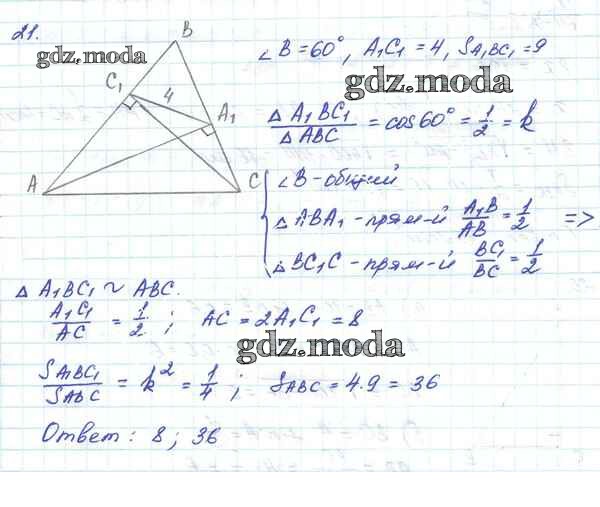 21.
B
∠B = 60°, A₁C₁ = 4, S A₁BC₁ = 9
gdz.moda
gdz.moda
C₁
4
A₁
△A₁BC₁ / △ABC = cos60° = 1/2 = k
A
C
∠B - общий
△ABA₁ - прям-й A₁B/AB = 1/2 =>
△BC₁C - прям-й BC₁/BC = 1/2
△A₁BC₁ ~ ABC.
A₁C₁/AC = 1/2 ; AC = 2A₁C₁ = 8
gdz.moda
SA₁BC₁/SABC = k² = 1/4 ; SABC = 4·9 = 36
Ответ: 8; 36